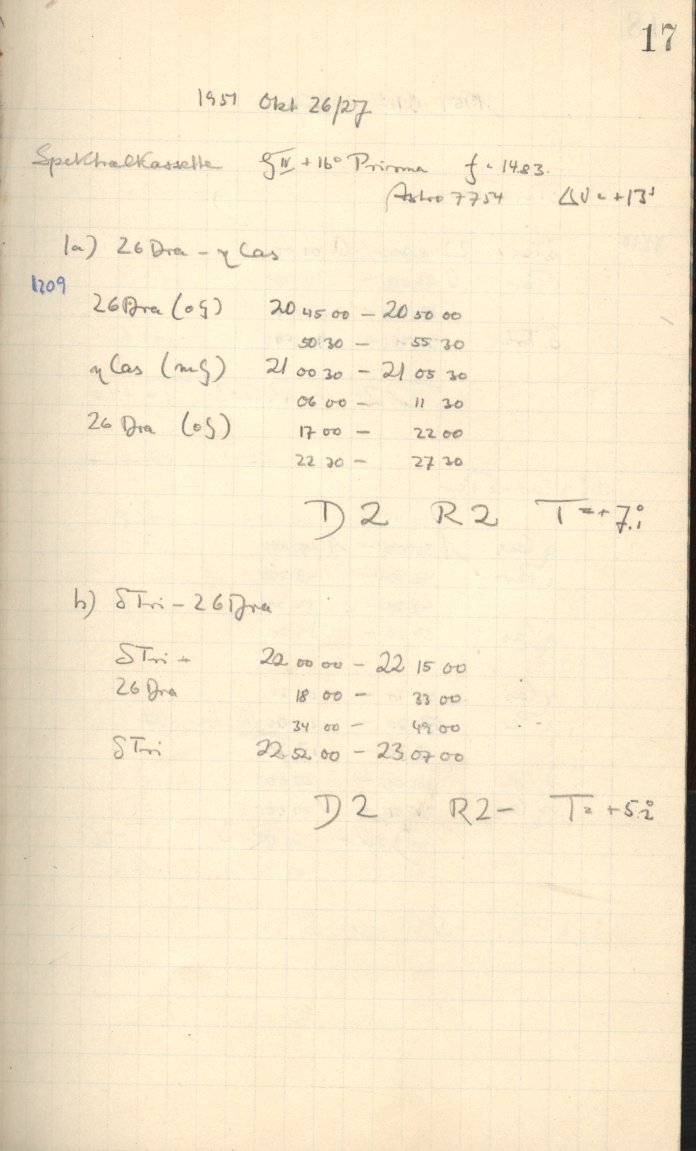 17
1951 Okt 26/27
Spektralkassette G IV + 16° Prisma f = 14.83.
Astro 7754 ΔU = +13s
1a) 26 Dra - η Cas
1209
26 Dra (oG) 20 45 00 - 20 50 00
50 30 - 55 30
η Cas (mG) 21 00 30 - 21 05 30
06 00 - 11 30
26 Dra (oG) 17 00 - 22 00
22 30 - 27 30
D 2 R 2 T = +7.°1
b) δ Tri - 26 Dra
δ Tri 22 00 00 - 22 15 00
26 Dra 18 00 - 33 00
34 00 - 49 00
δ Tri 22 52 00 - 23 07 00
D 2 R 2- T = +5.°2